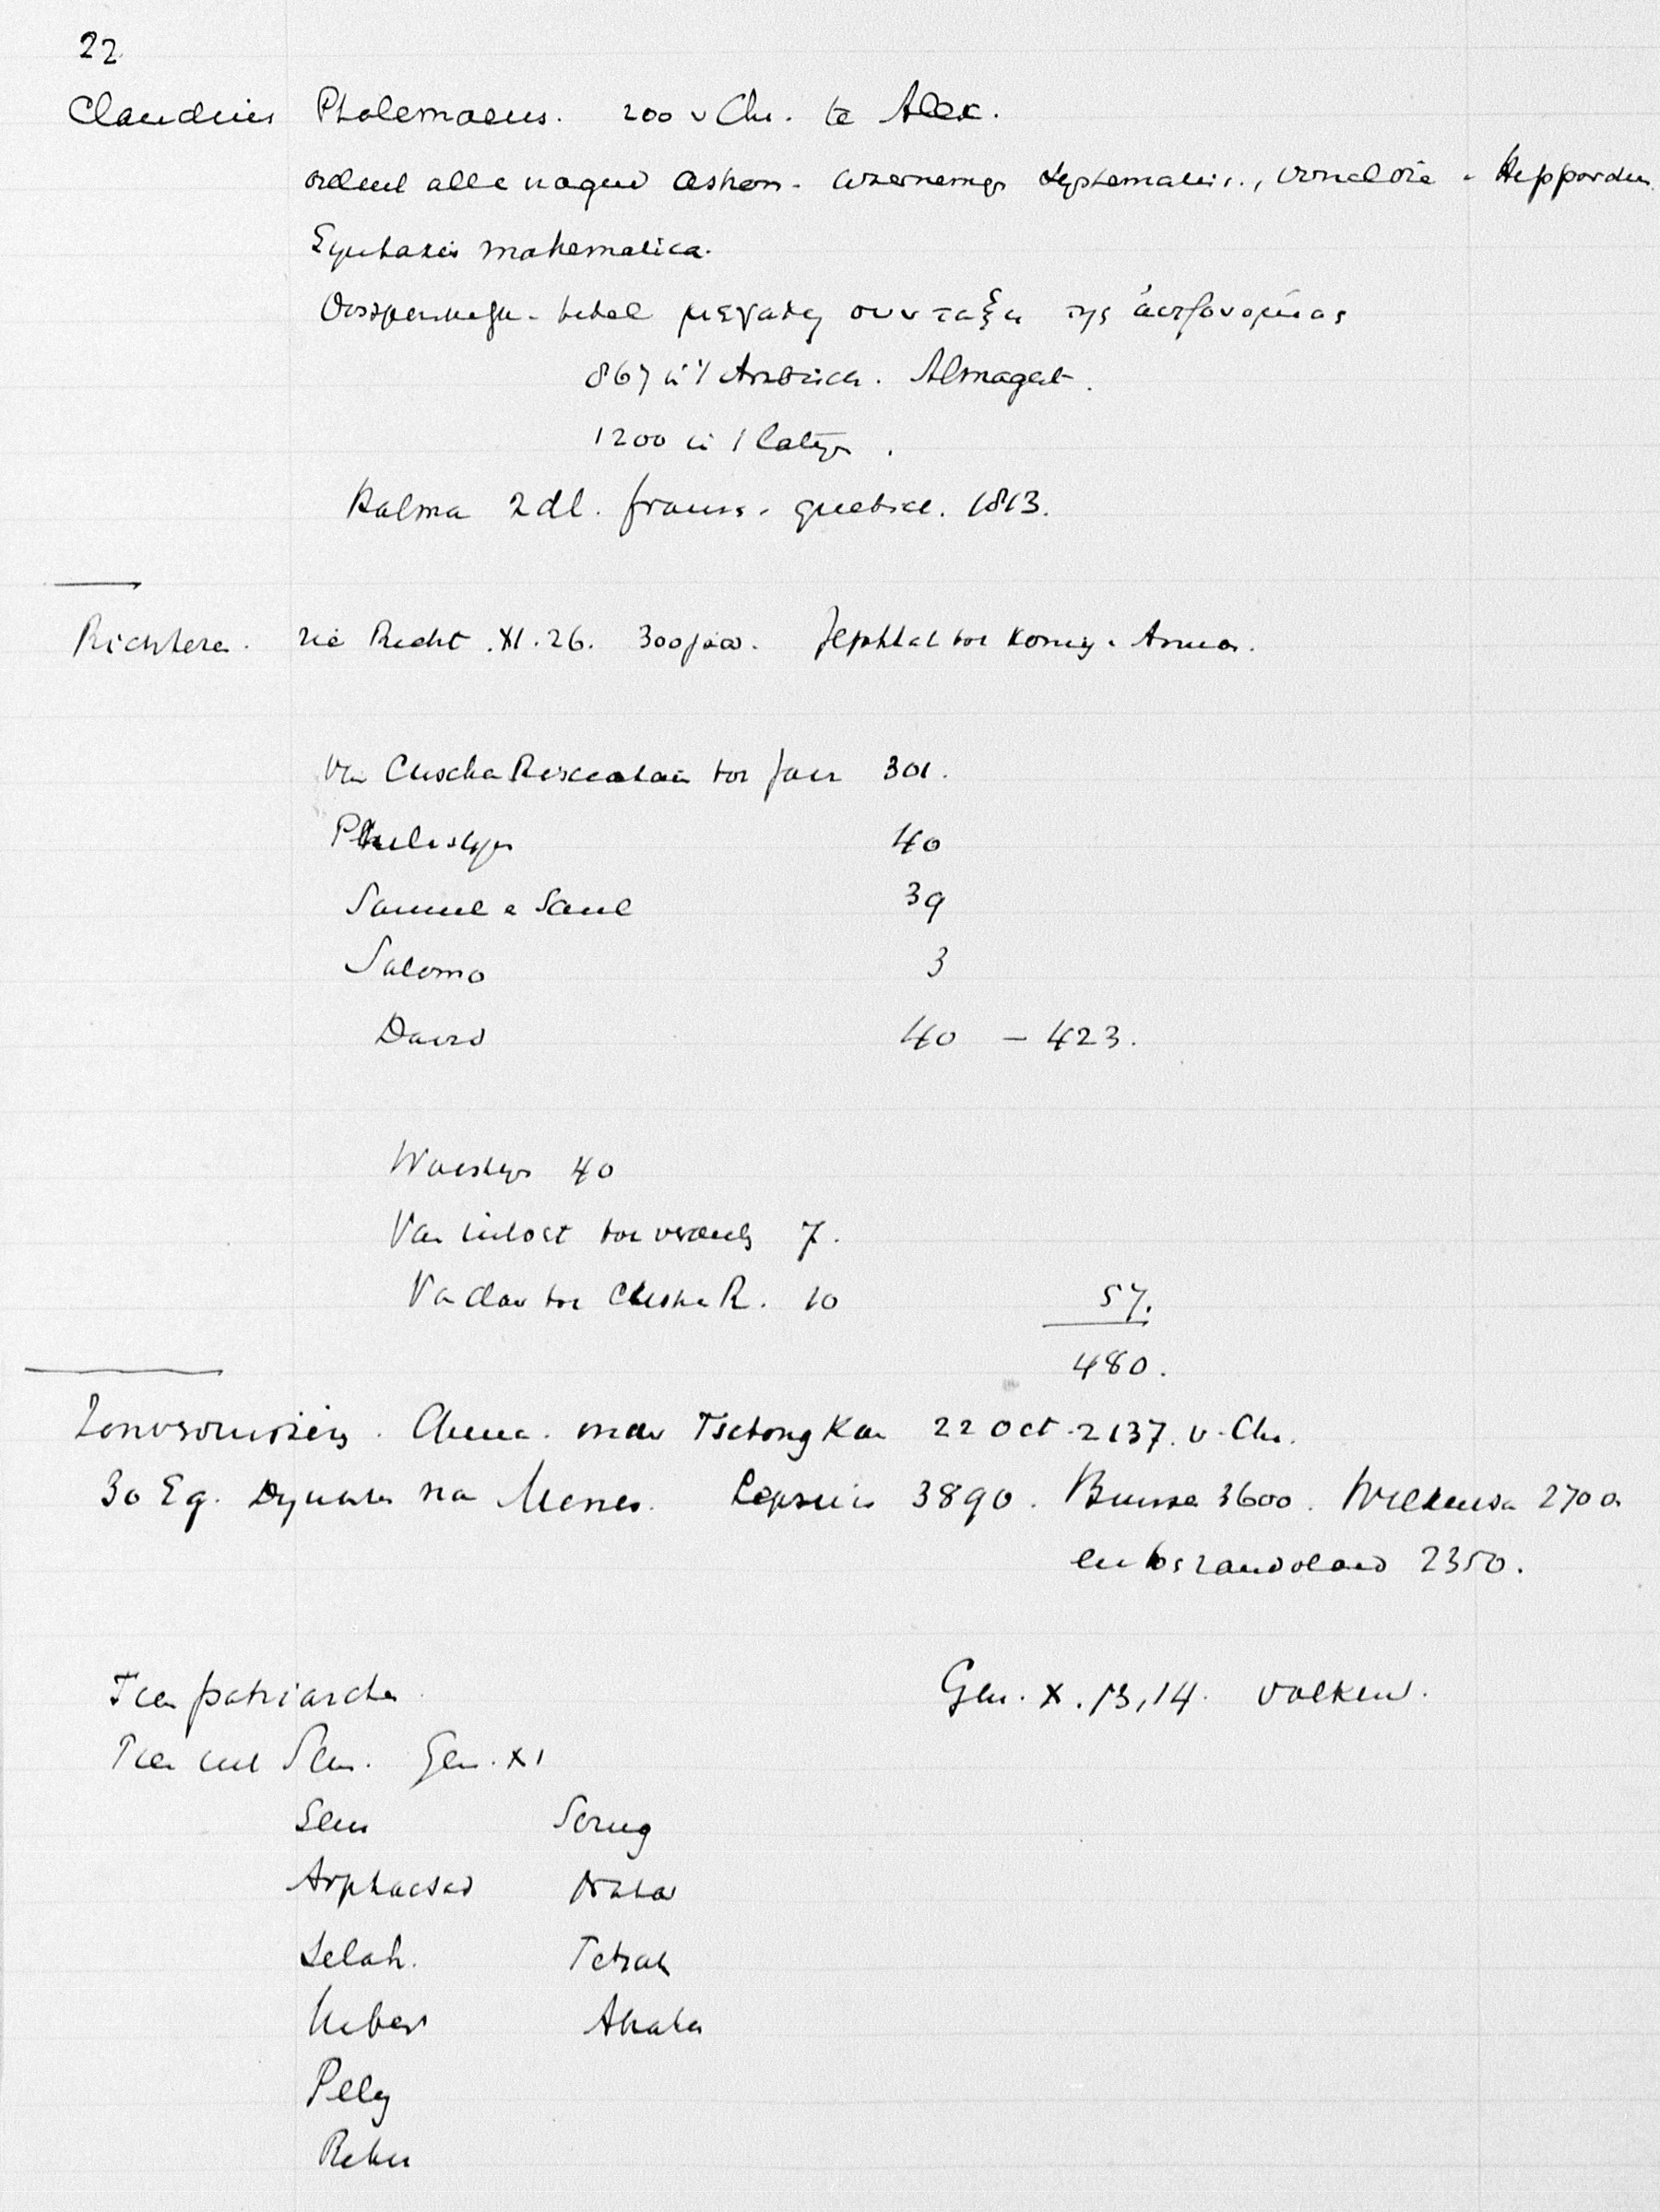 22.
Claudius Ptolemaeus. 200 v Chr. te Alex.
ordent alle nagel astron. waarnemgn systematis., vooral die v Hipparchus
Syntaxis mathematica.
Oorspronkelijke titel μεγαλη συνταξις της ἀστρονομίας
867 in 't Arabisch. Almagest.
1200 in 't latijn.
Halma 2 dl. frans. 1813.
Richteren. zie Richt. XI. 26. 300 jaar. Jephtah tot Koning v Ammon.
Van Cuschan Rischataim tot Jair 301.
Philistijn 40
Samuel en Saul 39
Salomo 3
David 40 – 423.
Woestijn 40
Van intocht tot verdeeling 7.
Van daar tot Cuschan R. 10 57.
480.
Zonsverduistering. China. onder Tschong Kan 22 Oct. 2137. v. Chr.
30 Eg. Dynast. na Menes. Lepsius 3890. Bunsen 3600. Wilkinson 2700
2350.
Tien patriarchen. Gen. X. 13, 14. volken.
Tien uit Sem. Gen. XI
Sem Serug
Arphacsad Nahor
Selah. Terah
Heber Abraham
Peleg
Rehu